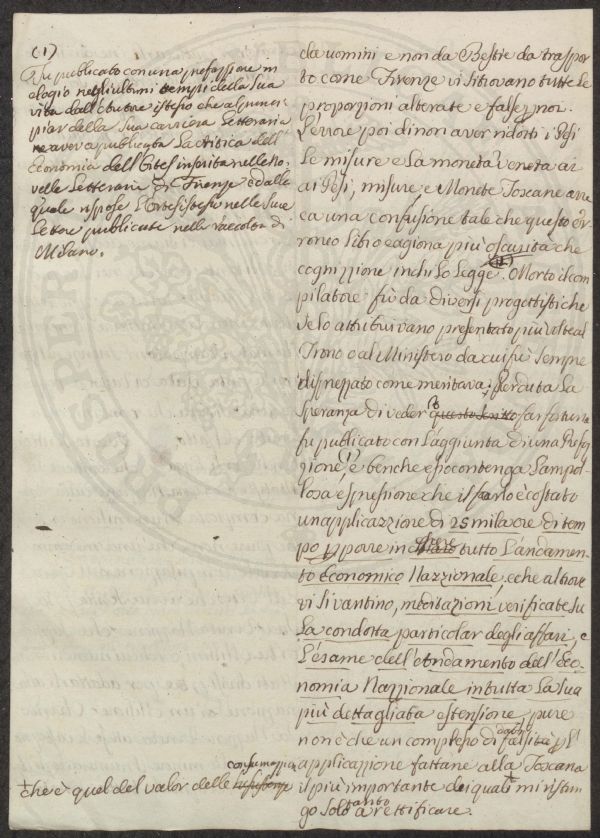 (1)
Fu publicato con una prefazzione in
elogio negli ultimi tempi della Sua
vita dall'Autore istesso che al princi-
piar della Sua carriera Letteraria
ne aveva publicata La Critica dell'
Economia dell'Ortes inserita nelle No-
velle Letterarie di Firenze ed alla
quale rispose L'Ortes istesso nelle Sue
Lettere publicate nella raccolta di
Milano.
che è quel del valor delle
consumazzio
da uomini e non da Bestie da traspor-
to come Firenze vi Si trovano tutte Le
proporzioni alterate e false, noi.
L'errore poi di non aver ridotti i Pesi
Le misure e La moneta Veneta ai
ai Pesi, misure, e Monete Toscane arre
ca una confusione tale che questo er-
roneo Libro cagiona più oscurità che
cognizzione in chi Lo Legge. Morto il com
pilatore fù da diversi progettisti che
Se lo attribuivano presentato più volte al
Trono o al Ministero da cui fu Sempre
disprezzato come meritava; Perduta La
Speranza di veder questo far fortuna
fu publicato con L'aggiunta di una Prefaz
zione(1), e benche esso contenga L'ampol
losa espressione che il farlo è costato
un'applicazzione di 25 mila ore di tem
po, appare in tutto L'andamen-
to Economico Nazzionale, e che altrove
vi Si vantino, meditazioni verificate Su
La condotta particolar degli affari, e
L'esame dell'Andamento dell'Eco-
nomia Nazzionale in tutta La Sua
più dettagliata estensione, pure
non è che un complesso di falsità e l'
applicazzione fattane alla Toscana
il più importante dei quali mi ristrin-
go Solo tanto a rettificare.